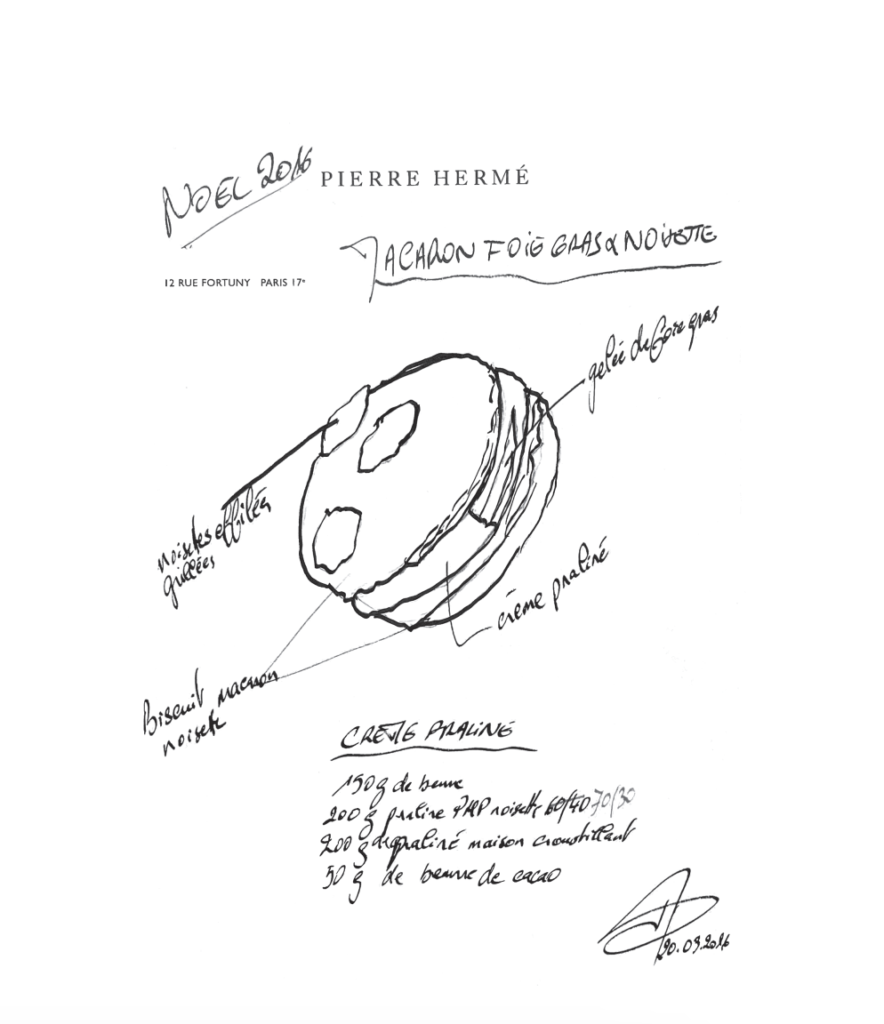 NOËL 2016
PIERRE HERMÉ
MACARON FOIE GRAS & NOISETTE
12 RUE FORTUNY PARIS 17e
gelée de foie gras
noisettes effilées
grillées
crème praliné
Biscuit macaron
noisette
CRÈME PRALINÉ
150 g de beurre
200 g praliné PHP noisette 60/40 70/30
200 g de praliné maison croustillant
50 g de beurre de cacao
20.09.2016